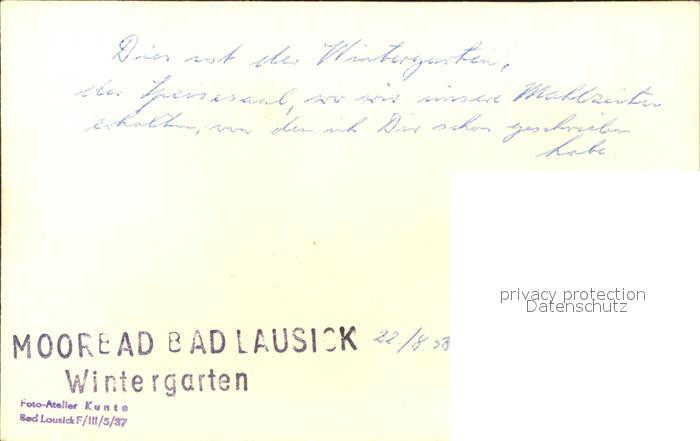 Dies ist der Wintergarten,
der Speisesaal, wo wir unsere Mahlzeiten
erhalten, von dem ich Dir schon geschrieben
habe.
privacy protection
Datenschutz
MOORBAD BAD LAUSICK 22/8 58
Wintergarten
Foto-Atelier Kunte
Bad Lausick F/III/5/37